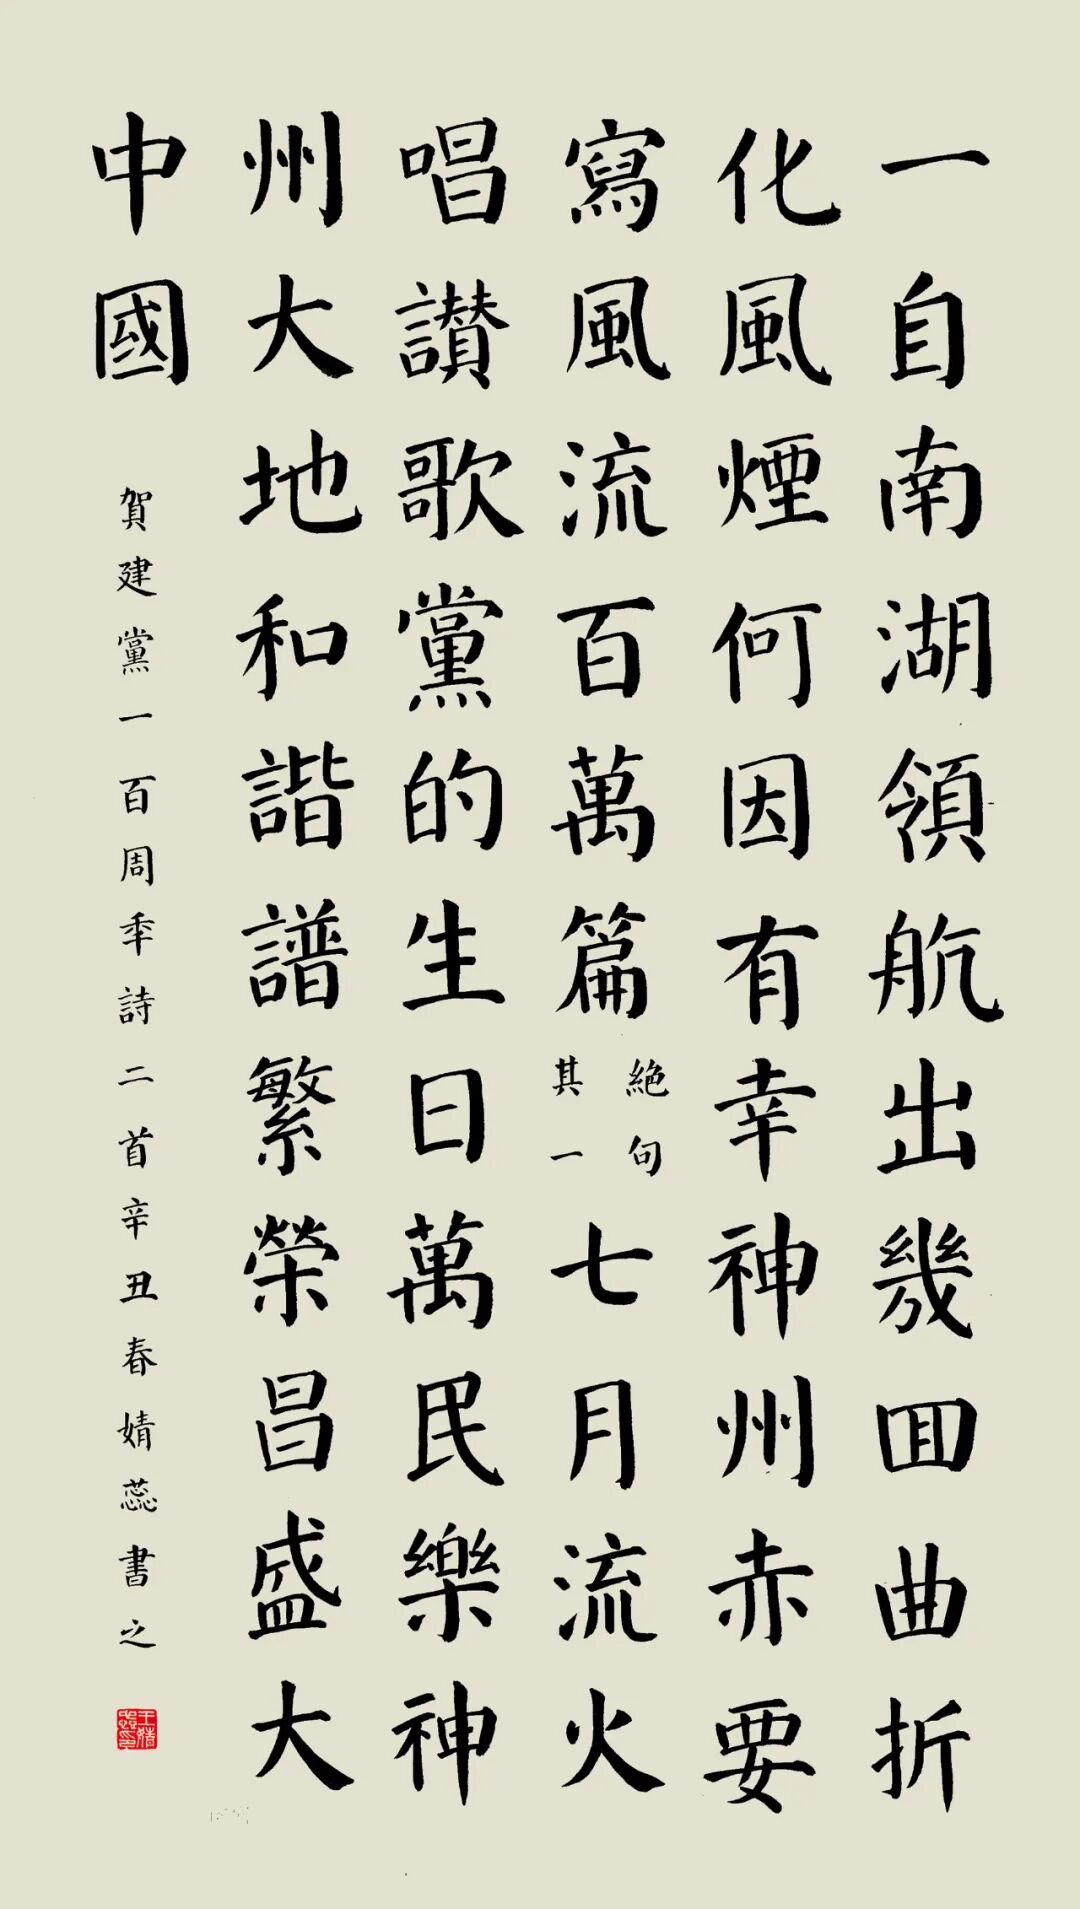 一自南湖領航出幾回曲折
化風煙何因有幸神州赤要
寫風流百萬篇
絕句
其一
七月流火
唱讚歌黨的生日萬民樂神
州大地和諧譜繁榮昌盛大
中國
賀建黨一百周年詩二首辛丑春婧蕊書之